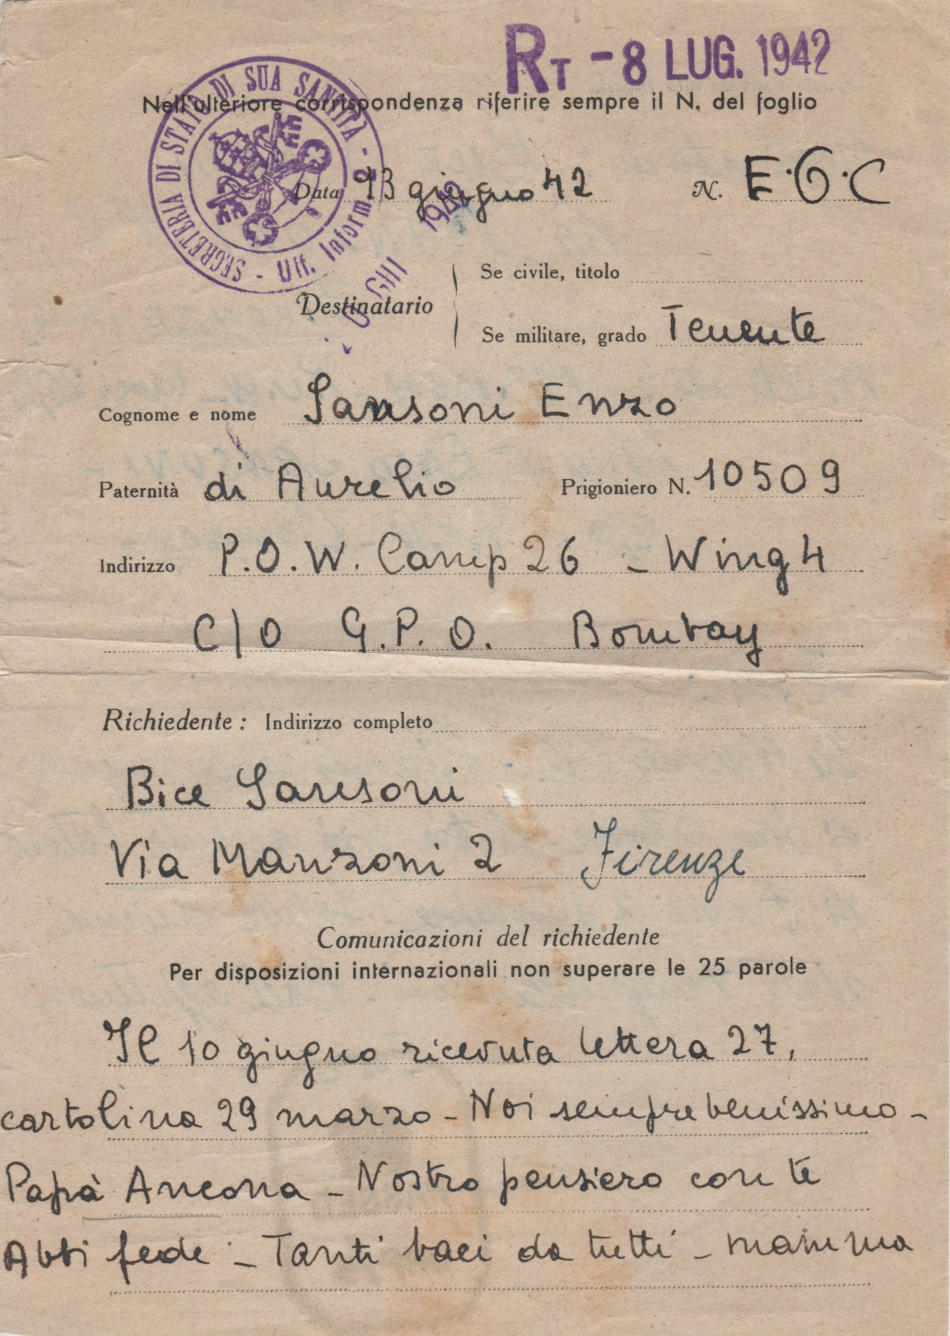 RT - 8 LUG. 1942
SEGRETERIA DI STATO DI SUA SANTITÀ - Uff. Inform.
Nell'ulteriore corrispondenza riferire sempre il N. del foglio
Data 13 giugno 42 N. E.G.C
GIU 1942
Se civile, titolo
Destinatario
Se militare, grado Tenente
Cognome e nome Sansoni Enzo
Paternità di Aurelio Prigioniero N. 10509
Indirizzo P.O.W. Camp 26 - Wing 4
C/O G.P.O. Bombay
Richiedente: Indirizzo completo
Bice Sansoni
Via Manzoni 2 Firenze
Comunicazioni del richiedente
Per disposizioni internazionali non superare le 25 parole
Il 10 giugno ricevuta lettera 27,
cartolina 29 marzo - Noi sempre benissimo -
Papà Ancona - Nostro pensiero con te
Abbi fede - Tanti baci da tutti - mamma